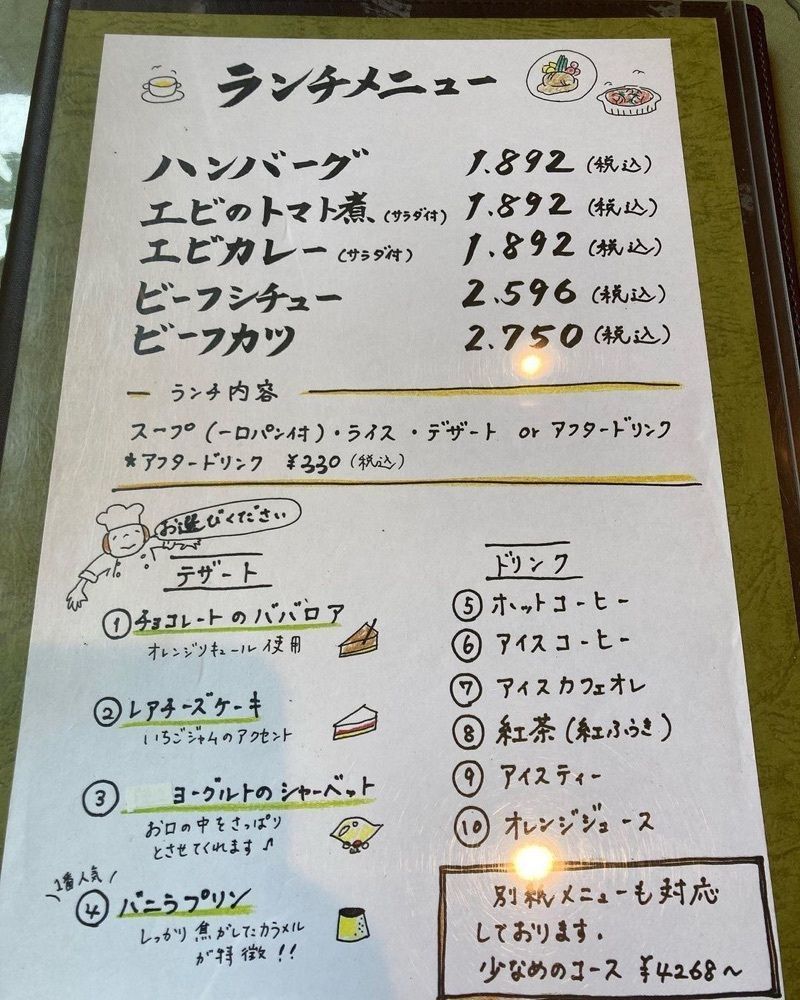 ランチメニュー
ハンバーグ 1.892 (税込)
エビのトマト煮 (サラダ付) 1.892 (税込)
エビカレー (サラダ付) 1.892 (税込)
ビーフシチュー 2.596 (税込)
ビーフカツ 2.750 (税込)
ー ランチ内容
スープ (一口パン付)・ライス・デザート or アフタードリンク
*アフタードリンク ¥330 (税込)
お選びください
デザート
① チョコレートのババロア
オレンジリキュール使用
② レアチーズケーキ
いちごジャムのアクセント
③ ヨーグルトのシャーベット
お口の中をさっぱり
とさせてくれます♪
1番人気
④ バニラプリン
しっかり焦がしたカラメル
が特徴!!
ドリンク
⑤ ホットコーヒー
⑥ アイスコーヒー
⑦ アイスカフェオレ
⑧ 紅茶 (紅ふうき)
⑨ アイスティー
⑩ オレンジジュース
別紙メニューも対応
しております.
少なめのコース ¥4268～